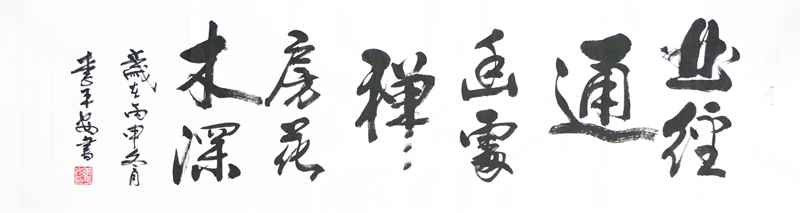 曲徑
通
幽處
禪
房花
木深
歲在丙申冬月
李平安書